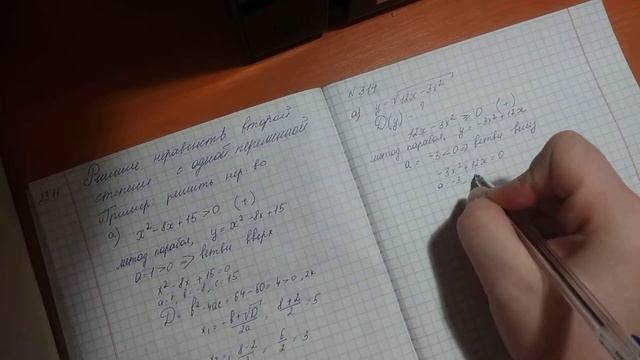 23.11
Решение неравенств второй
степени с одной переменной
Пример: решить нер-во
а) x²-8x+15>0 (+)
метод парабол, y=x²-8x+15
a=1>0 => ветви вверх
x²-8x+15=0
D=b²-4ac=64-60=4>0, 2к
x₁=(-b+√D)/2a = (8+2)/2=5
(8-2)/2 = 6/2 = 3
N 314
а) y=√12x-3x²
D(y)-?
12x-3x²≥0 (+)
метод парабол, y=-3x²+12x
a=-3<0=> ветви вниз
-3x²+12x=0
a=-3